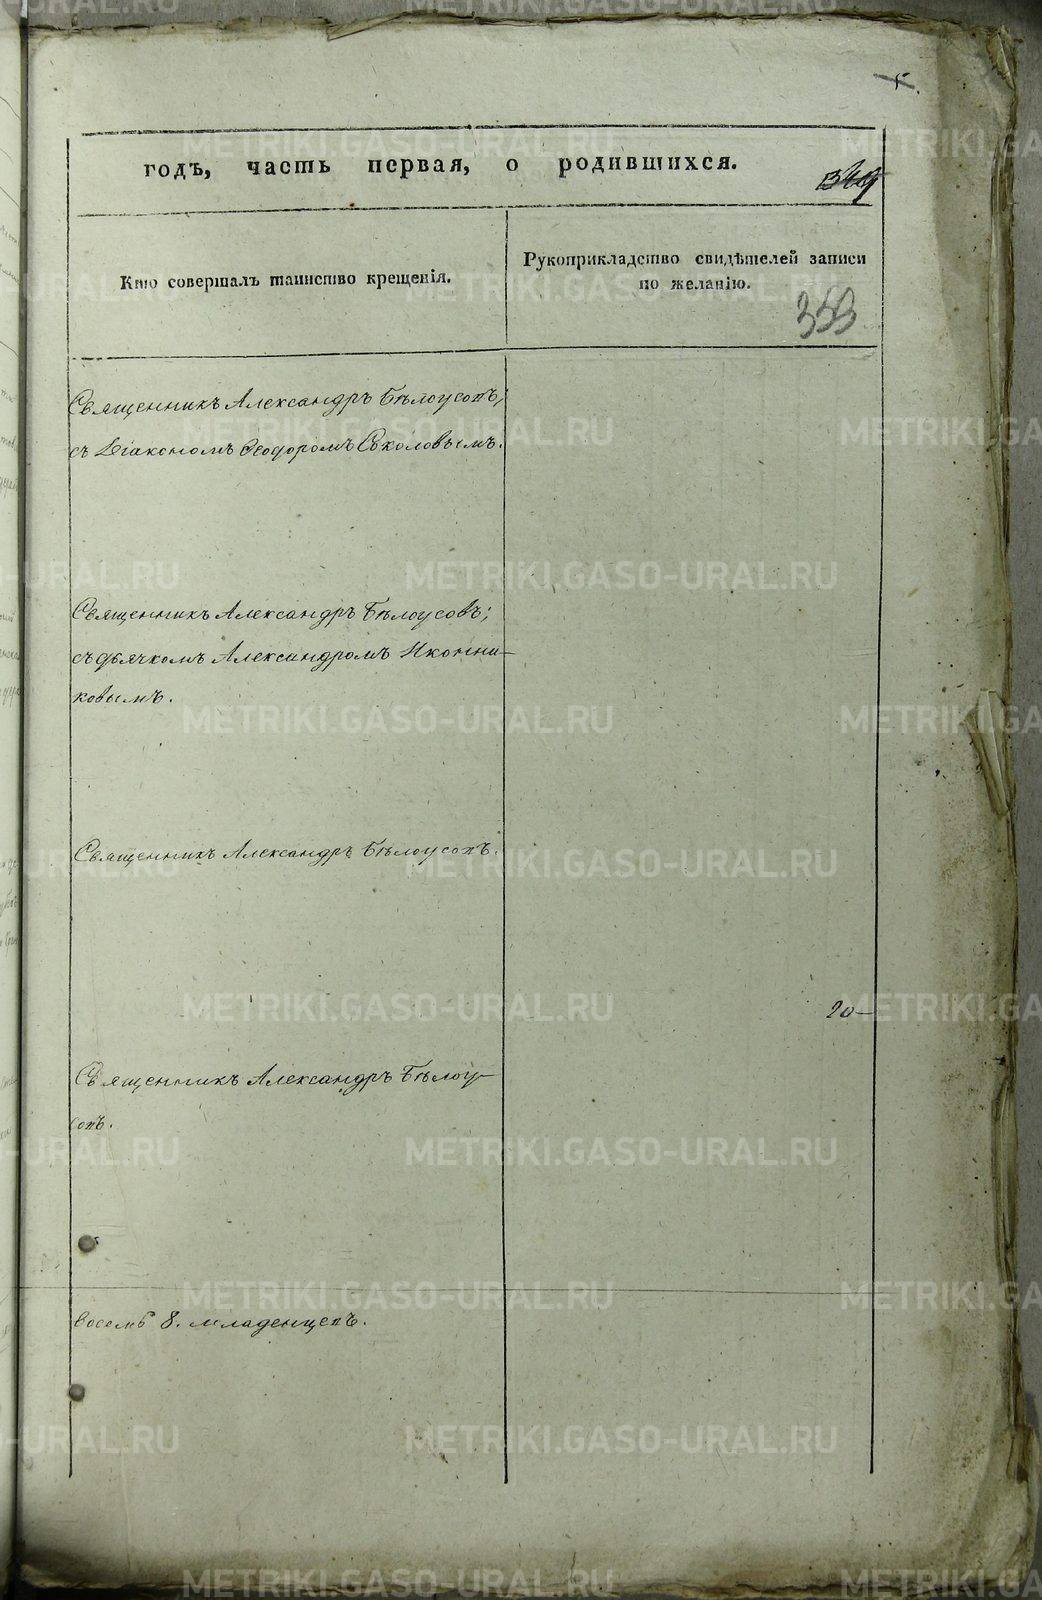 5.
годъ, часть первая, о родившихся.
349
Кто совершалъ таинство крещенія.
Рукоприкладство свидѣтелей записи
по желанію.
353
Священникъ Александръ Бѣлоусовъ;
съ Діакономъ Ѳеодоромъ Соколовымъ.
Священникъ Александръ Бѣлоусовъ;
съ дьячкомъ Александромъ Иконни-
ковымъ.
Священникъ Александръ Бѣлоусовъ.
20
Священникъ Александръ Бѣлоу-
совъ.
восемь 8. младенцевъ.
METRIKI.GASO-URAL.RU